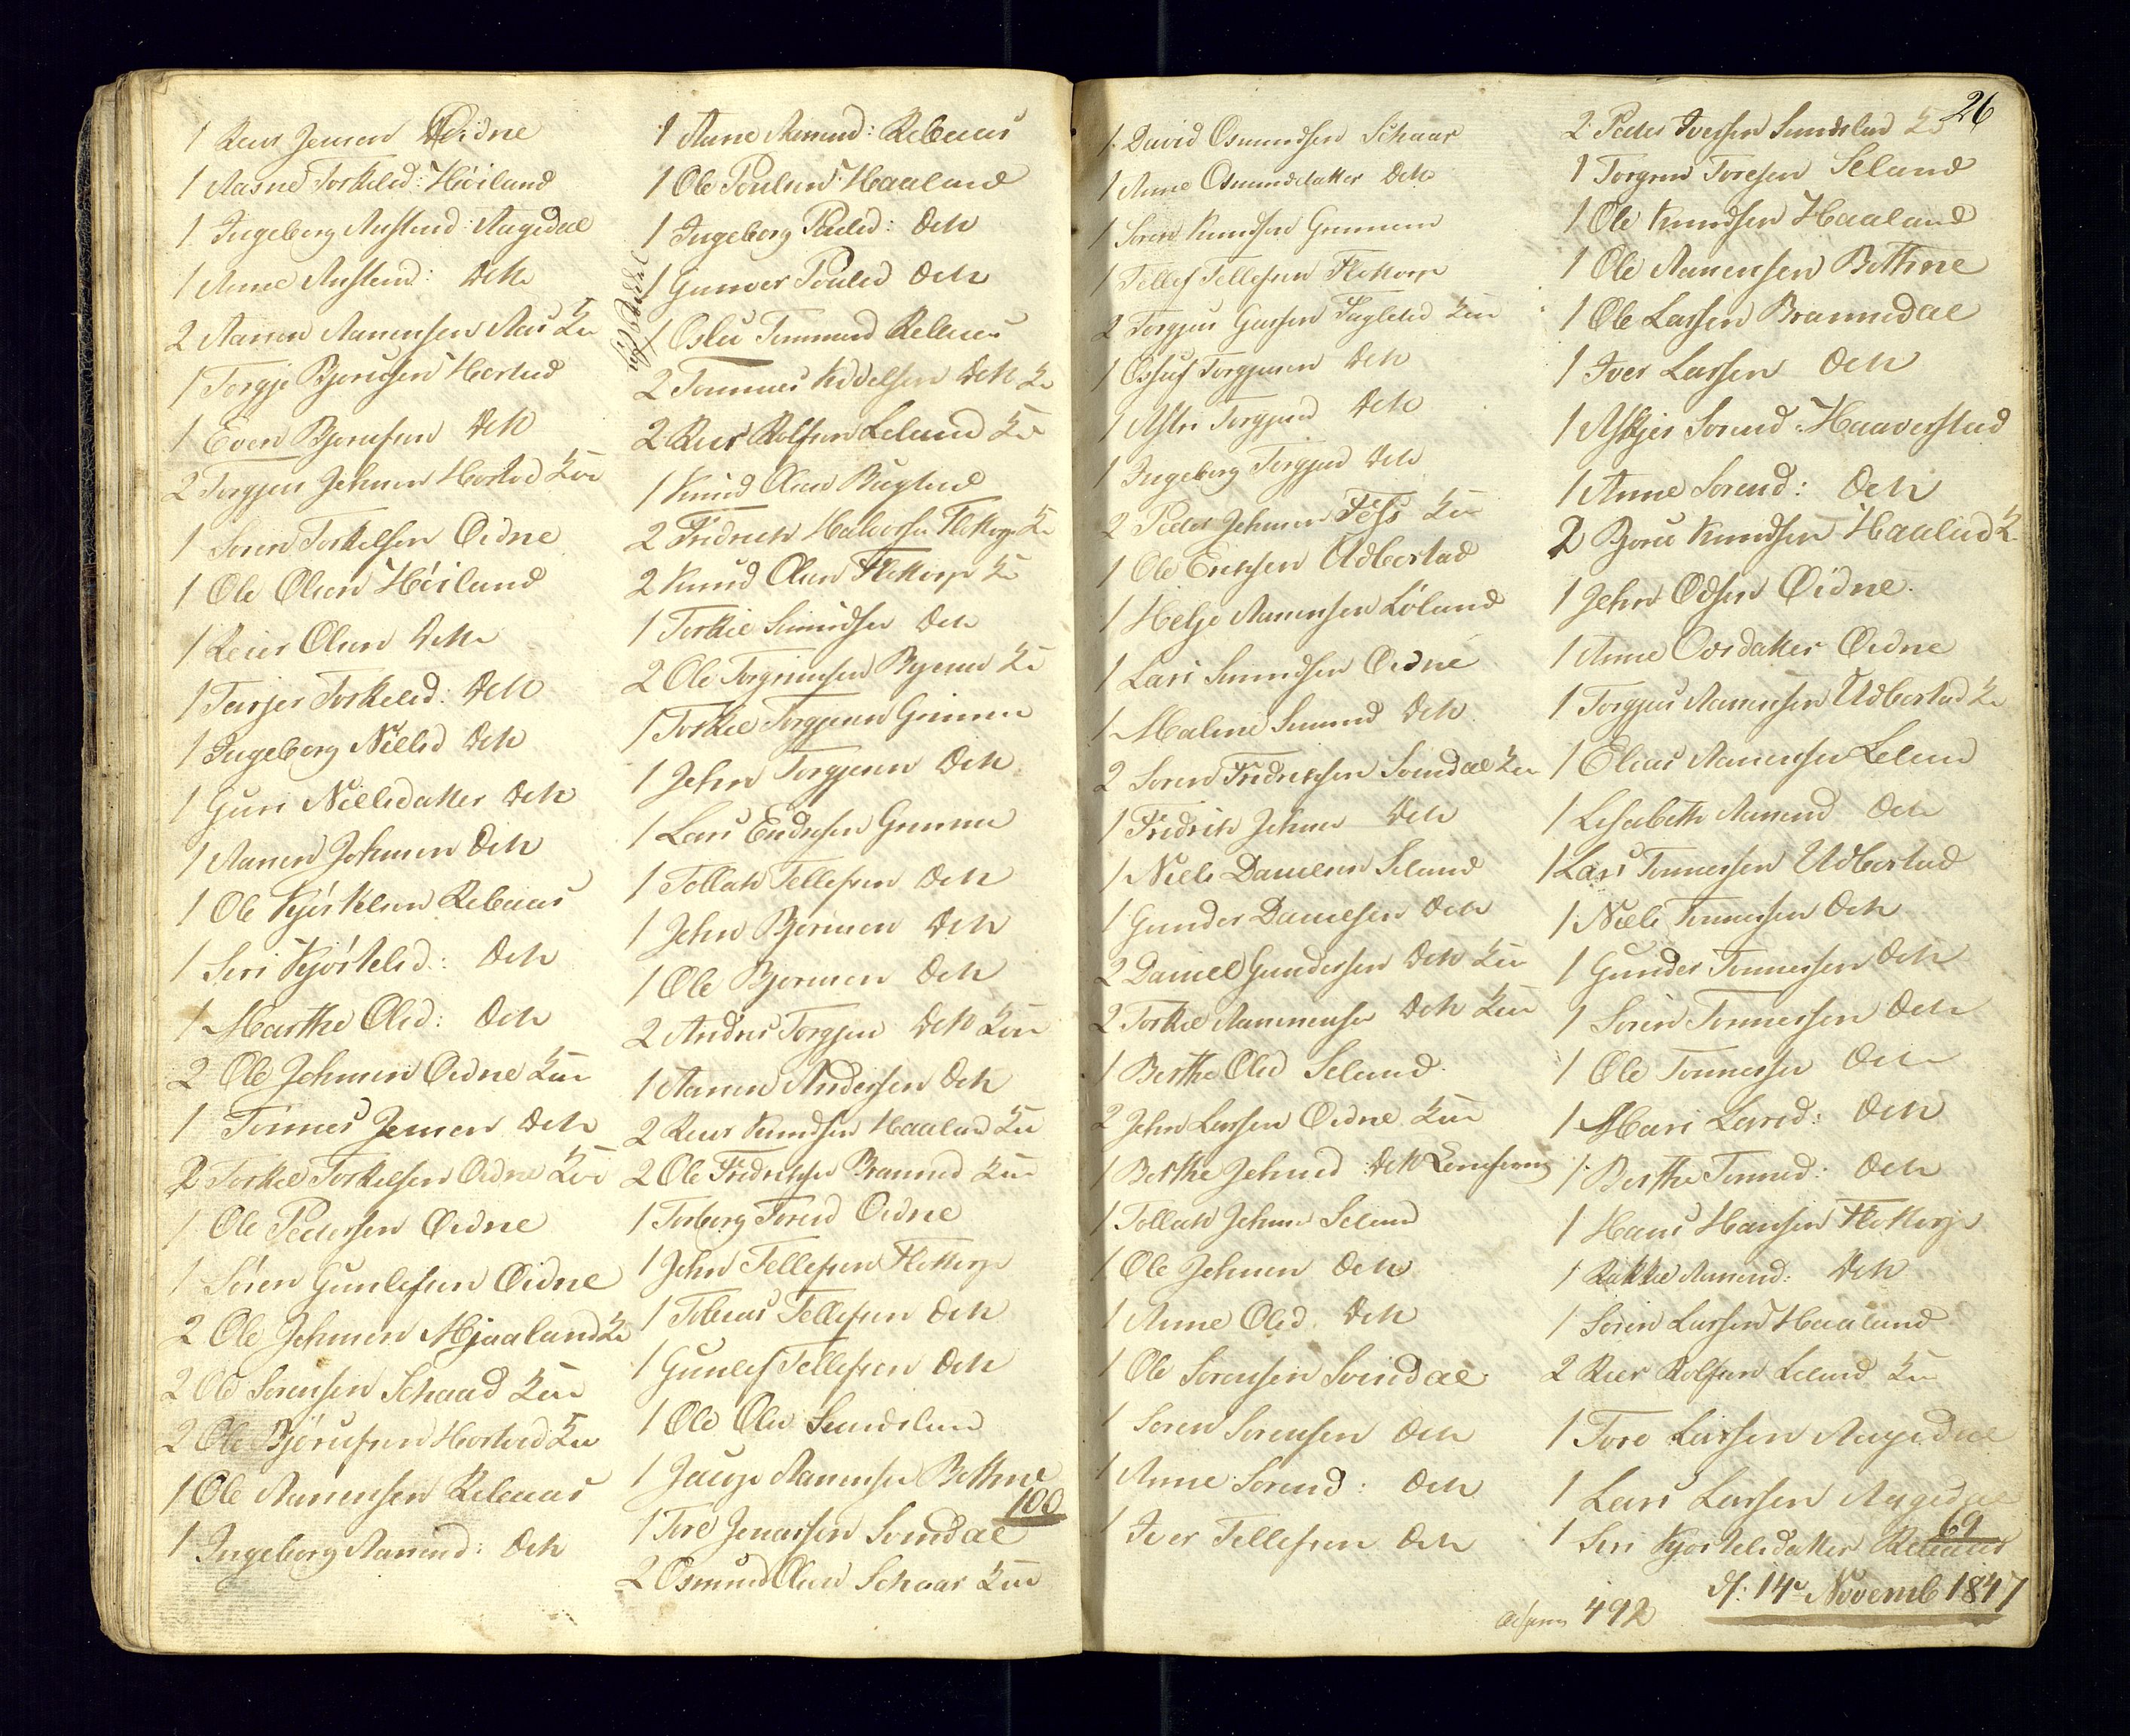 1 Reier Jensen Øidne
1 Aasne Torkelsd: Höiland
1 Ingeborg Austend: Aagedal
1 Anne Austend: Dito
2 Aanen Aanensen Aas Kone
1 Torgje Bjorufsen Hortved
1 Even Bjorufsen Dito
2 Torgjus Johnsen Hortved Kone
1 Soren Torkelsen Øidne
1 Ole Olsen Höiland
1 Reier Olsen Ditto
1 Tarjer Torkelsd: Dito
1 Ingeborg Nielsd Dito
1 Guri Nielsdatter Dito
1 Aanen Johnsen Dito
1 Ole Kjöstelsen Rebaas
1 Siri Kjöstelsd: Dito
1 Marthe Olsd: Dito
2 Ole Johnsen Øidne Kone
1 Tönnes Jensen Dito
2 Torkel Torkelsen Øidne Kone
1 Ole Pedersen Øidne
1 Sören Gunlefsen Øidne
2 Ole Johnsen Mjaaland Ko
2 Ole Sorensen Schaad Kone
2 Ole Björufsen Hortved Kone
1 Ole Aanensen Rebaas
1 Ingeborg Aanend: Dito
1 Anne Aanend: Rebaas
1 Ole Poulsen Haaland
1 Ingeborg Poulsd: Dito
1 Gunvor Poulsd Dito
1 Oslu Tönnesd Rebaas
2 Tönnes Kiddelsen Dito Ko
2 Reier Rolfsen Leland Ko
1 Knud Olsen Buglend
2 Fredrich Halvorsen Flottorp Ko
2 Knud Olsen Flottorp Ko
1 Torkel Simudsen Dito
2 Ole Torgrimsen Bjerum Ko
1 Torkel Torgjusen Grimem
1 John Torgjusen Dito
1 Lars Endresen Grimem
1 Tollak Tellefsen Dito
1 John Bjornsen Dito
1 Ole Bjornsen Dito
2 Andres Torgjus Dito Kone
1 Aanen Andersen Dito
2 Reier Knudsen Haaland Ko
2 Ole Fredrichsen Brannsd Kone
1 Torborg Toresd Øidne
1 John Tellefsen Flottorp
1 Tobias Tellefsen Dito
1 Gunlef Tellefsen Dito
1 Ole Olsen Sundsland
1 Aanensen Bothne
100
1 Tore Jonassen Svindal
2 Osmund Olsen Schaar Kone
1 David Osmundsen Schaar
1 Anne Osmundsdatter Dito
1 Soren Knudsen Grimem
1 Tellef Tellefsen Flottorp
2 Torgjus Gursen Fuglested Kone
1 Osuf Torgjusen Dito
1 Astri Torgjusd Dito
1 Ingeborg Torgjusd Dito
2 Peder Johnsen Foss Kone
1 Ole Ericksen Udbostad
1 Helje Aanensen Löland
1 Lars Simundsen Øidne
1 Maline Simund Dito
2 Soren Fredrichsen Svindal Kone
1 Fredrik Johnsen Dito
1 Niels Danielsen Seland
1 Gunder Danielsen Dito
2 Daniel Gundersen Dito Kone
2 Torkel Aanensen Dito Kone
1 Berthe Olsd Seland
2 John Larsen Øidne Kone
1 Berthe Johnsd Dito
1 Tollak Johnsen Seland
1 Ole Johnsen Dito
1 Anne Olsd. Dito
1 Ole Sorensen Svindal
1 Soren Sorensen Dito
1 Anne Sorend: Dito
1 Iver Tellefsen Dito
26
2 Peder Iversen Sundsland Ko
1 Torgrim Toresen Seland
1 Ole Knudsen Haaland
1 Ole Aanensen Bothne
1 Ole Larsen Brannsdal
1 Iver Larsen Dito
1 Askjer Sorend: Haaverstad
1 Anne Sorend: Dito
2 Bjoru Knudsen Haaland K
1 John Odsen Øidne
1 Anne Ovsdatter Øidne
1 Torgjus Aanensen Udbostad Ko
1 Elias Aanensen Leland
1 Lisabeth Aanend Dito
1 Lars Tönnessen Udbostad
1 Niels Tönnessen Dito
1 Gunder Tonnessen Dito
1 Sören Tonnessen Dito
1 Ole Tonnessen Dito
1 Mari Larsd: Dito
1 Berthe Tonnesd: Dito
1 Hans Hansen Flottorp
1 Aanend: Dito
1 Soren Larsen Haaland
2 Reier Rolfsen Leland Ko
1 Tore Larsen Aagedal
1 Lars Larsen Aagedal
1 Siri Kjostelsdatter Rebaas
69
492 d: 14de Novemb 1847